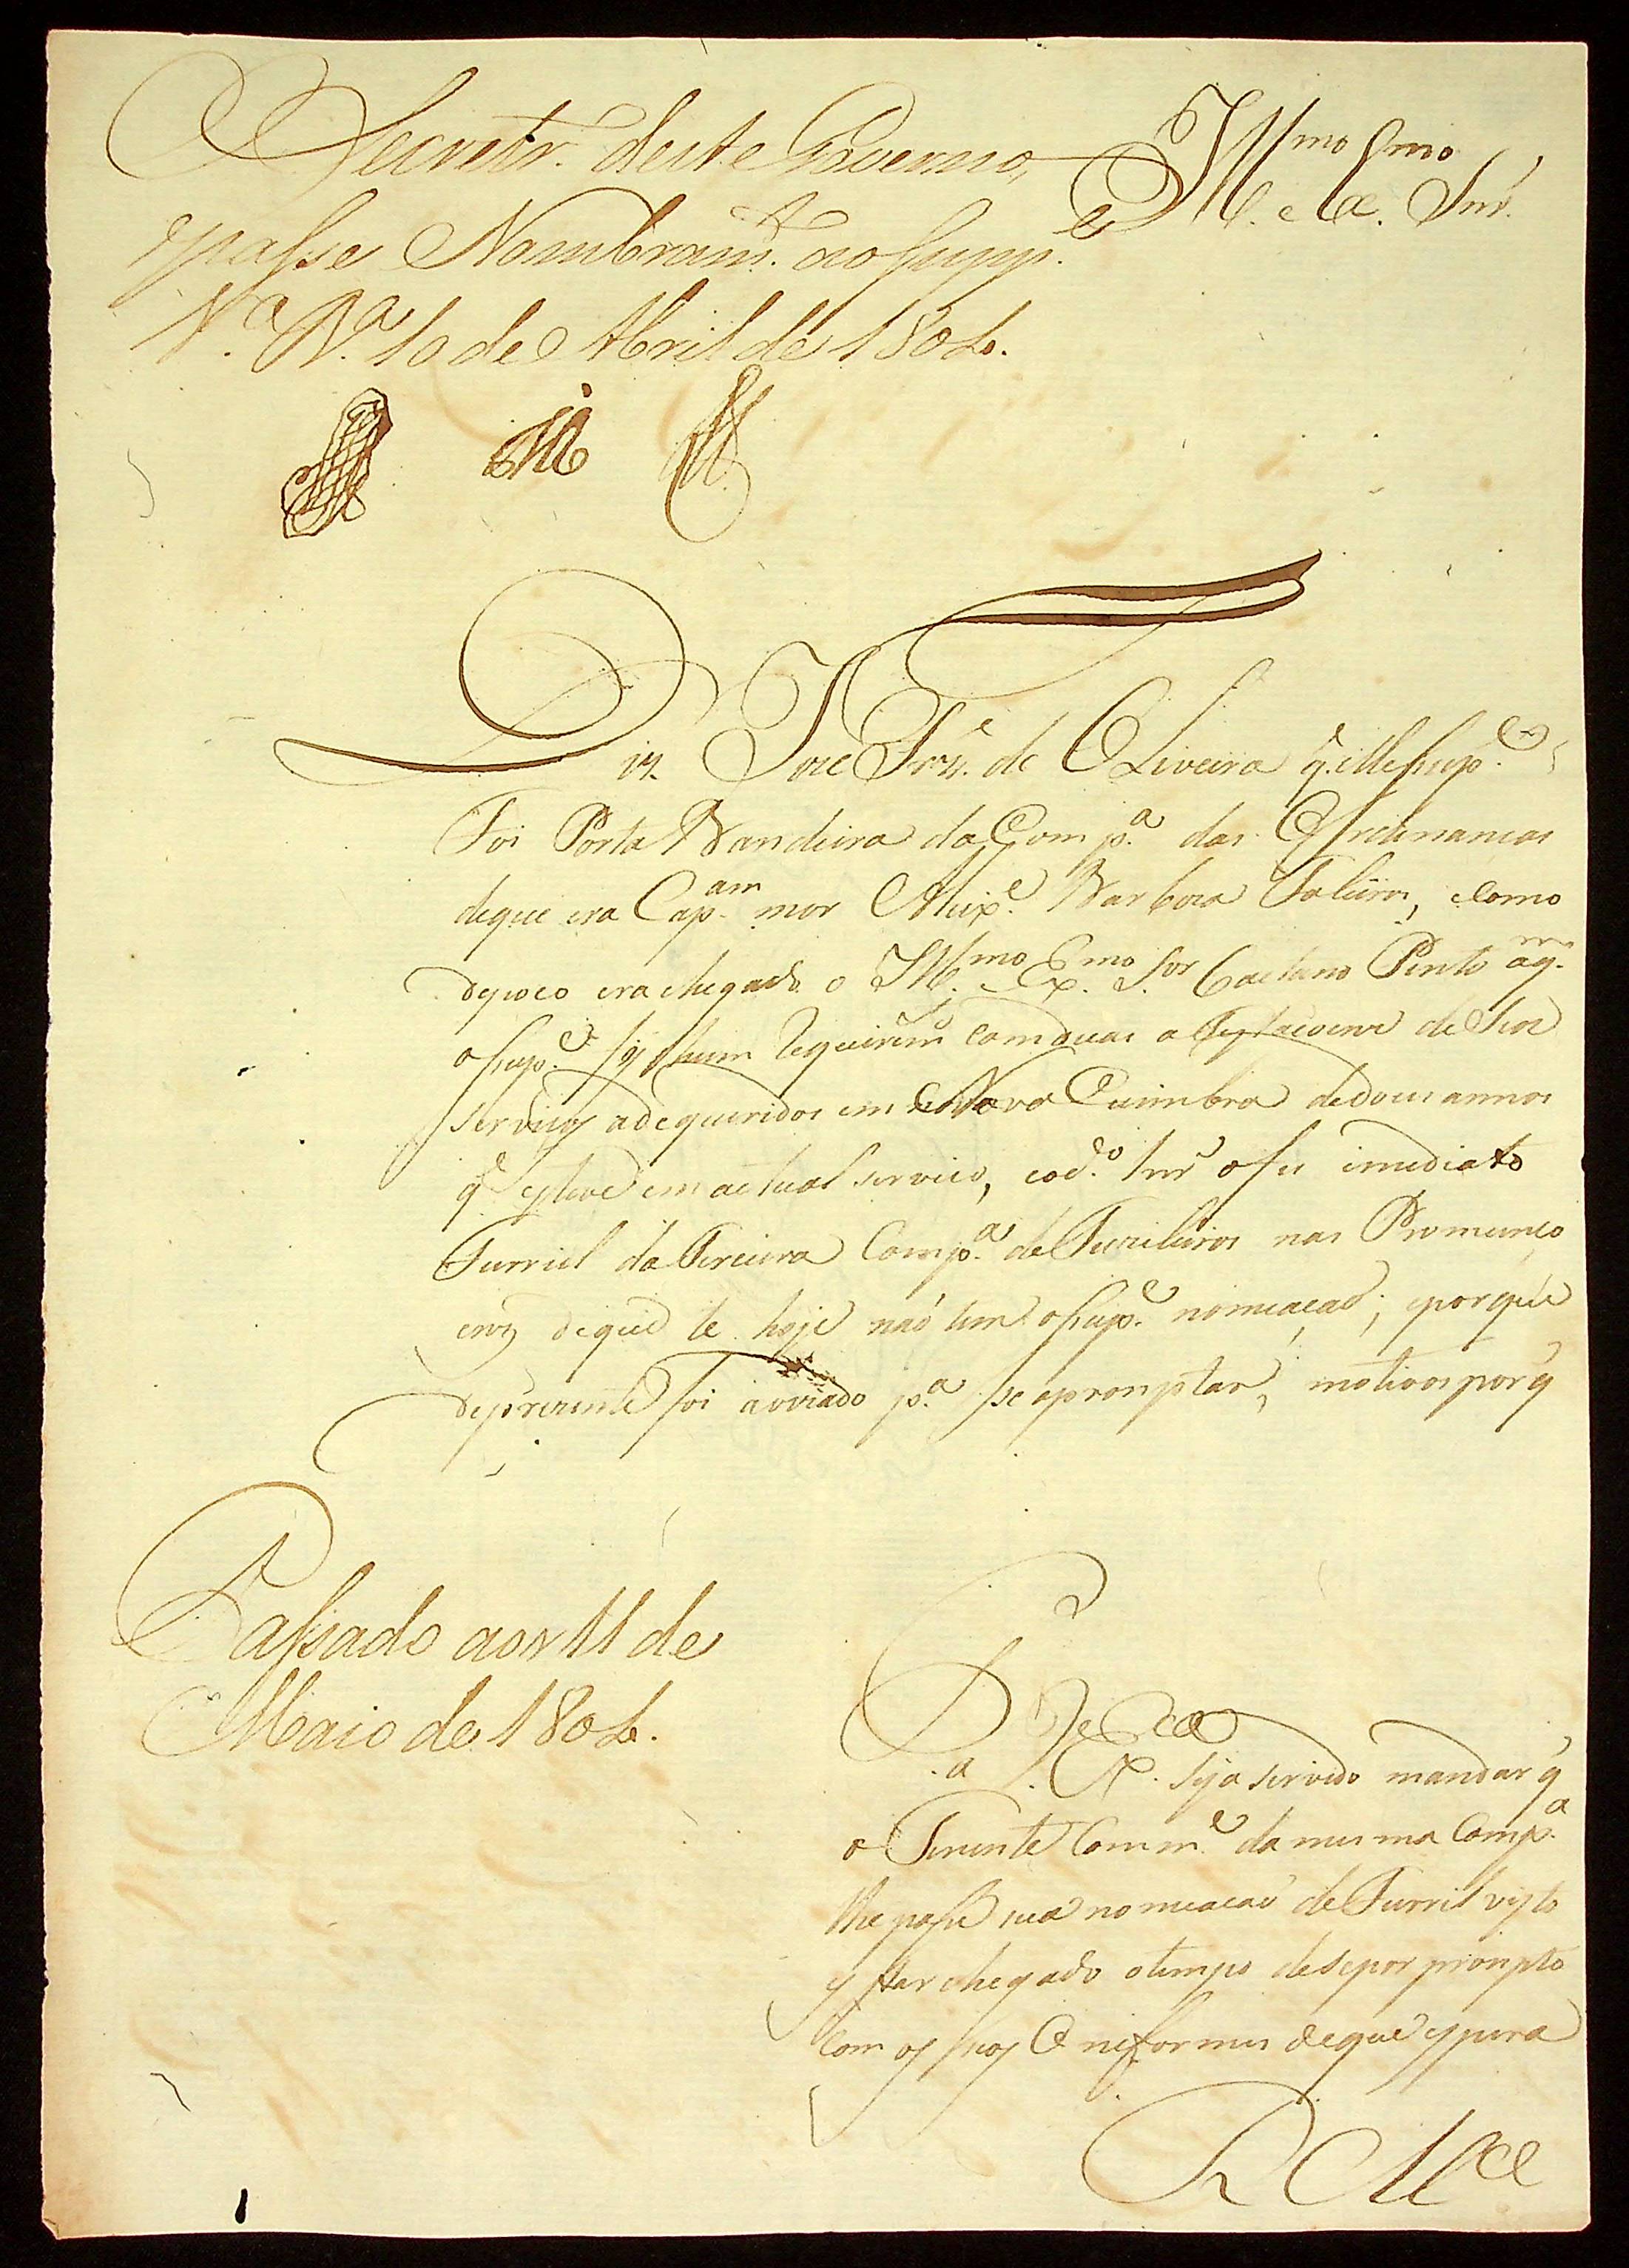 O Secretr.º deste Governo,
passe Nombram.to ao Supp.e
V.a B.a 10 de Abril de 1804.
Ill.mo e Ex.mo Snr.
Diz Joze Frz. de Oliveira q. elle Sup.e
foi Porta Bandeira da Comp.a das Ordenancas
de que era Cap.am mor Aleix.e Barboza
de poco era chegado o Ill.mo e Ex.mo S.or Caetano Pinto
o Sup.e fes hum Requerim.to com duas atestacoens de Seos
servicos adequeridos em Nova Cuimbra de dous annos
q. esteve em actual servico,
Furriel da Terceira Comp.a de Fuzileiros nas Promunco
ens de que te hoje não tem o Sup.e nomeacaó; e porque
de prezente foi avizado p.a se apronptar, motivos porq
Passado aos 11 de
Maio de 1804.
P. a V. Ex.a seja servido mandar q
o Tenente Comm.e da mesma Comp.a
lhe passe sua nomeacaó de Furril visto
estar chegado o tempo de se por pronpto
com os seos Uniformes de que espera
R. M.ce